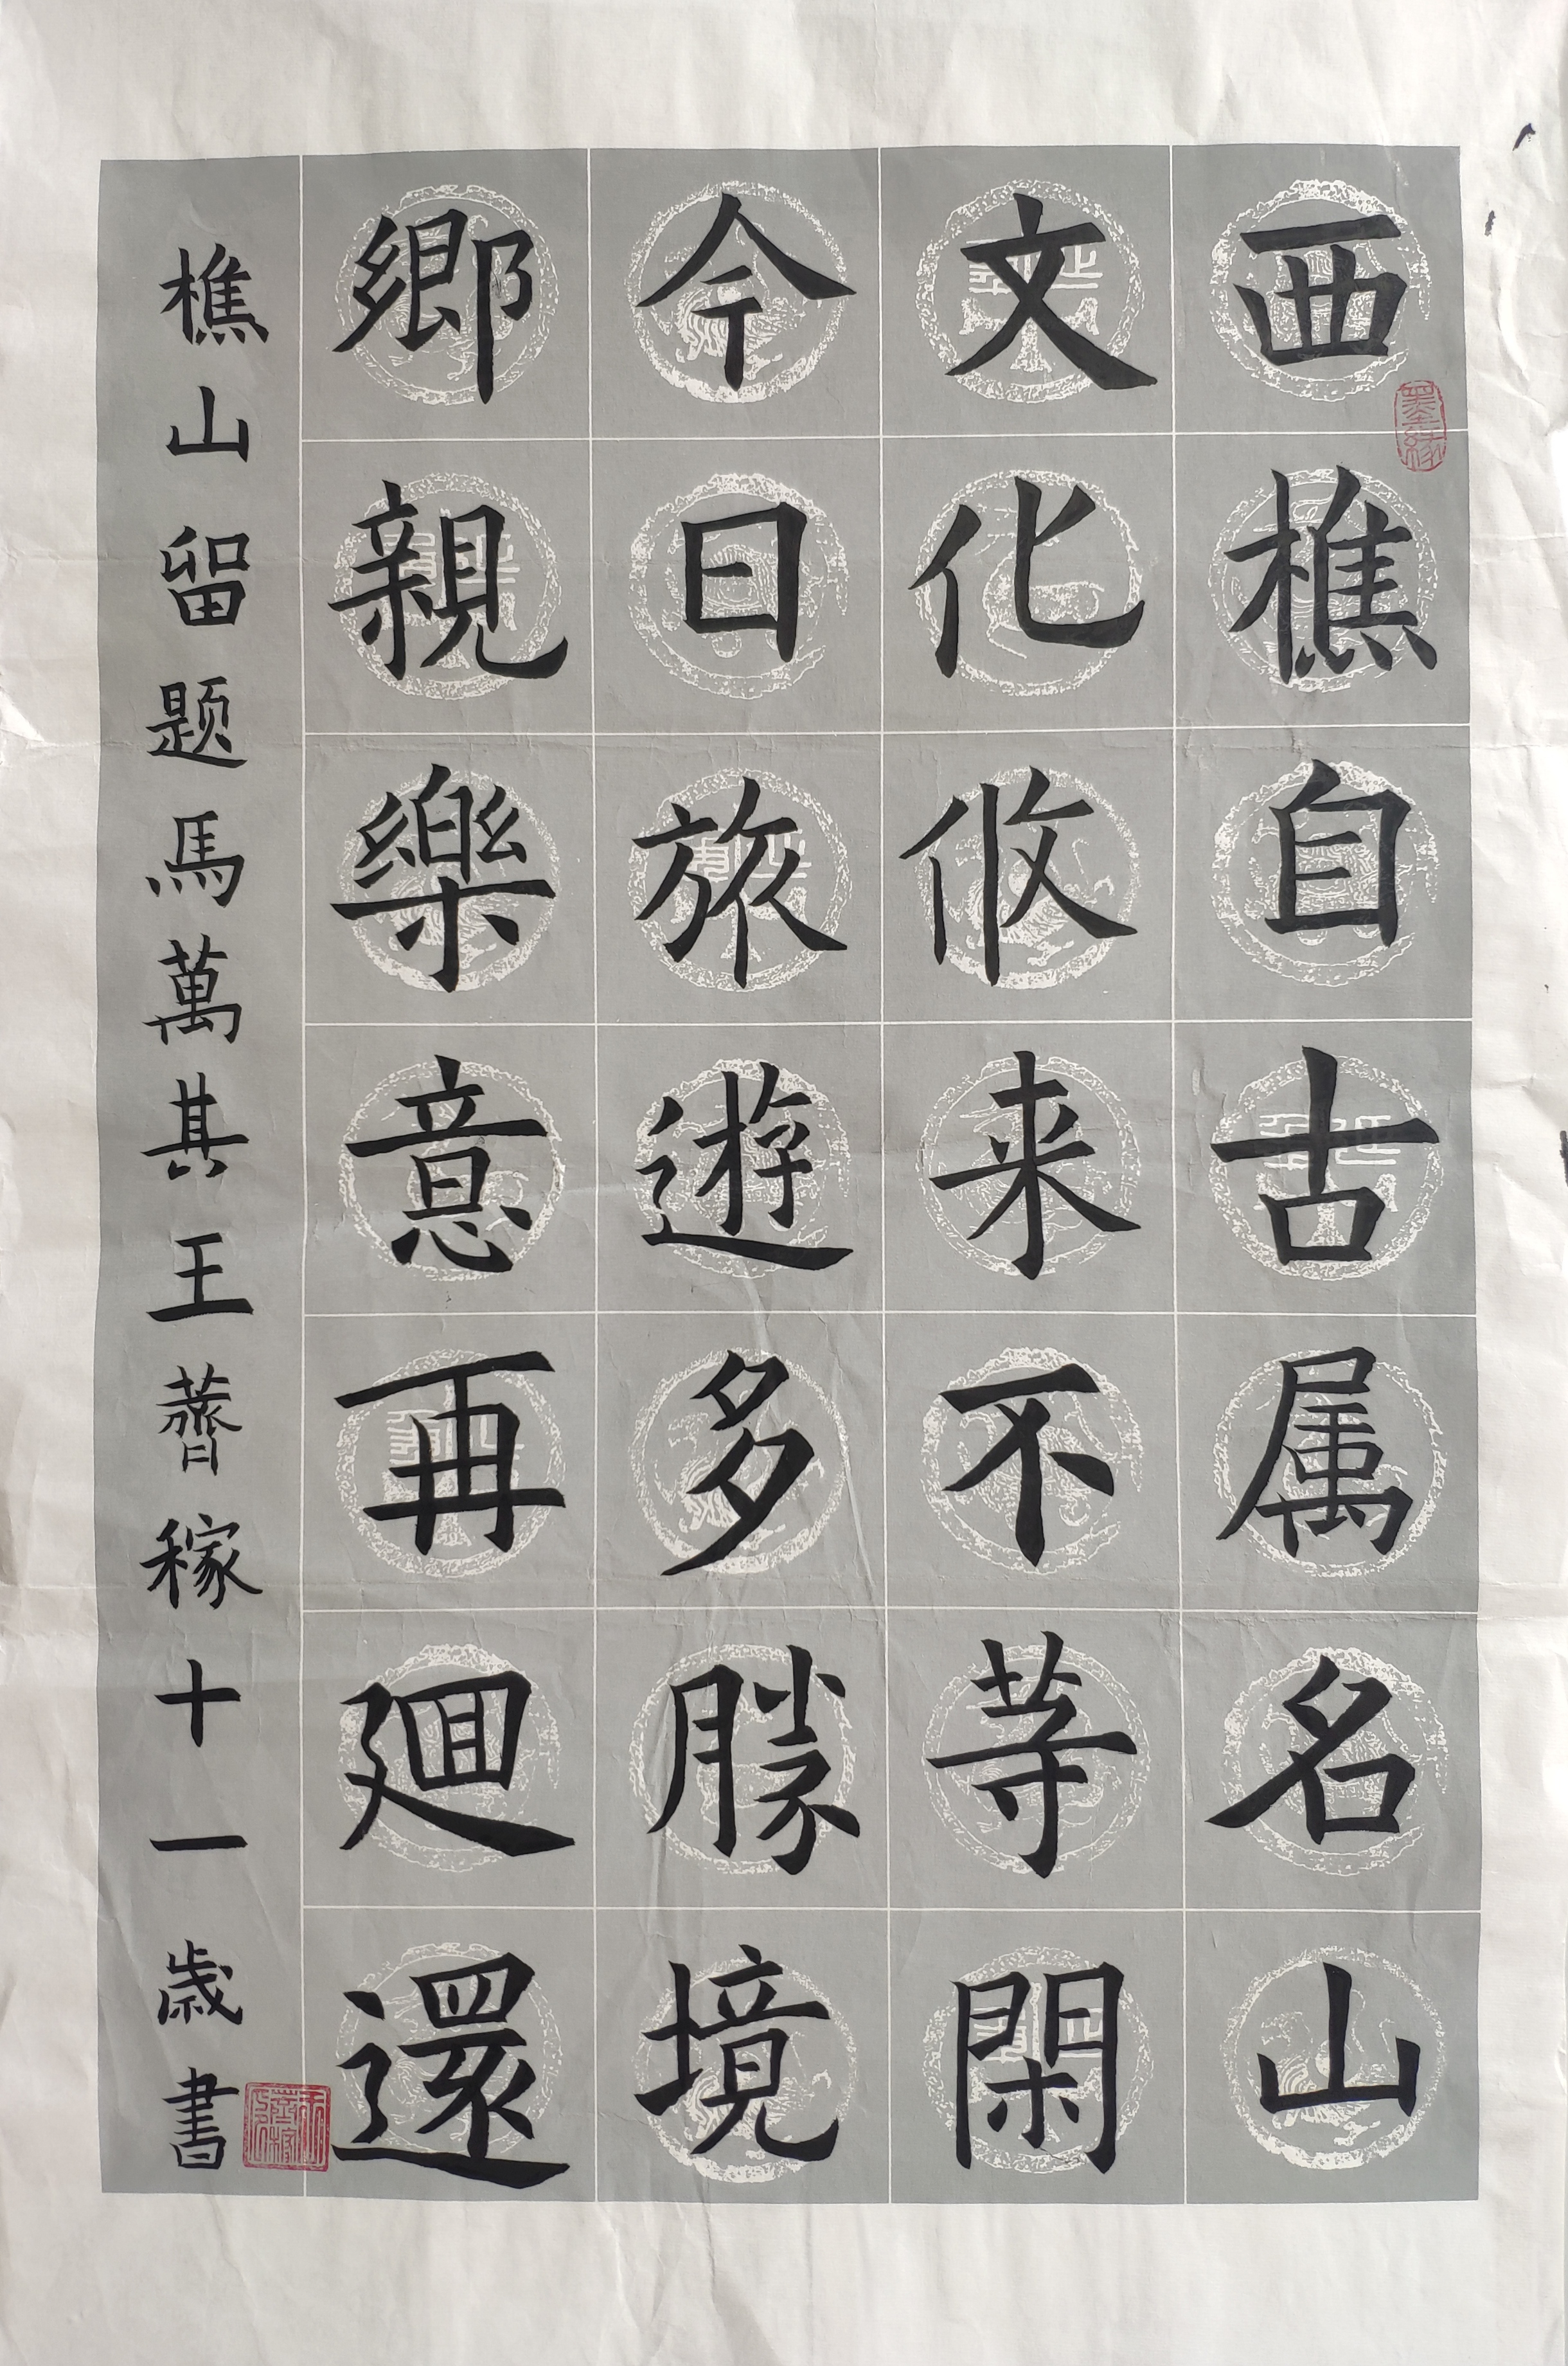 西樵自古属名山
文化攸来不等閑
今日旅遊多勝境
鄉親樂意再廻還
樵山留题馬萬其王薺稼十一歳書
墨缘